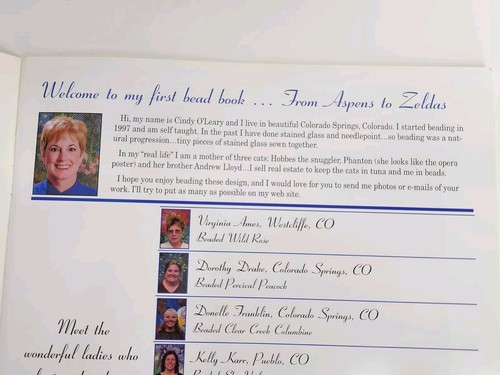 Welcome to my first bead book ... From Aspens to Zeldas
Hi, my name is Cindy O'Leary and I live in beautiful Colorado Springs, Colorado. I started beading in
1997 and am self taught. In the past I have done stained glass and needlepoint...so beading was a nat-
ural progression...tiny pieces of stained glass sewn together.
In my "real life" I am a mother of three cats: Hobbes the snuggler, Phanton (she looks like the opera
poster) and her brother Andrew Lloyd...I sell real estate to keep the cats in tuna and me in beads.
I hope you enjoy beading these design, and I would love for you to send me photos or e-mails of your
work. I'll try to put as many as possible on my web site.
Virginia Ames, Westcliffe, CO
Beaded Wild Rose
Dorothy Drake, Colorado Springs, CO
Beaded Percival Peacock
Donelle Franklin, Colorado Springs, CO
Beaded Clear Creek Columbine
Kelly Karr, Pueblo, CO
Meet the
wonderful ladies who